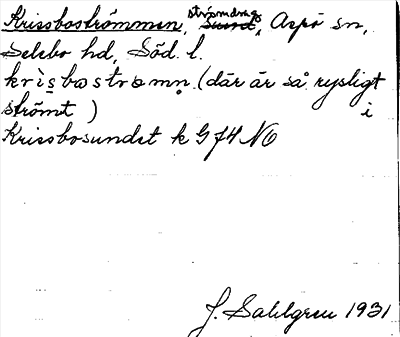 Krissboströmmen, strömdrag, Aspö sn,
Selebo hd, Söd. l.
krìsboströmn. (där är så rysligt
strömt) i
Krissbosundet k G f4 NO
J. Sahlgren 1931